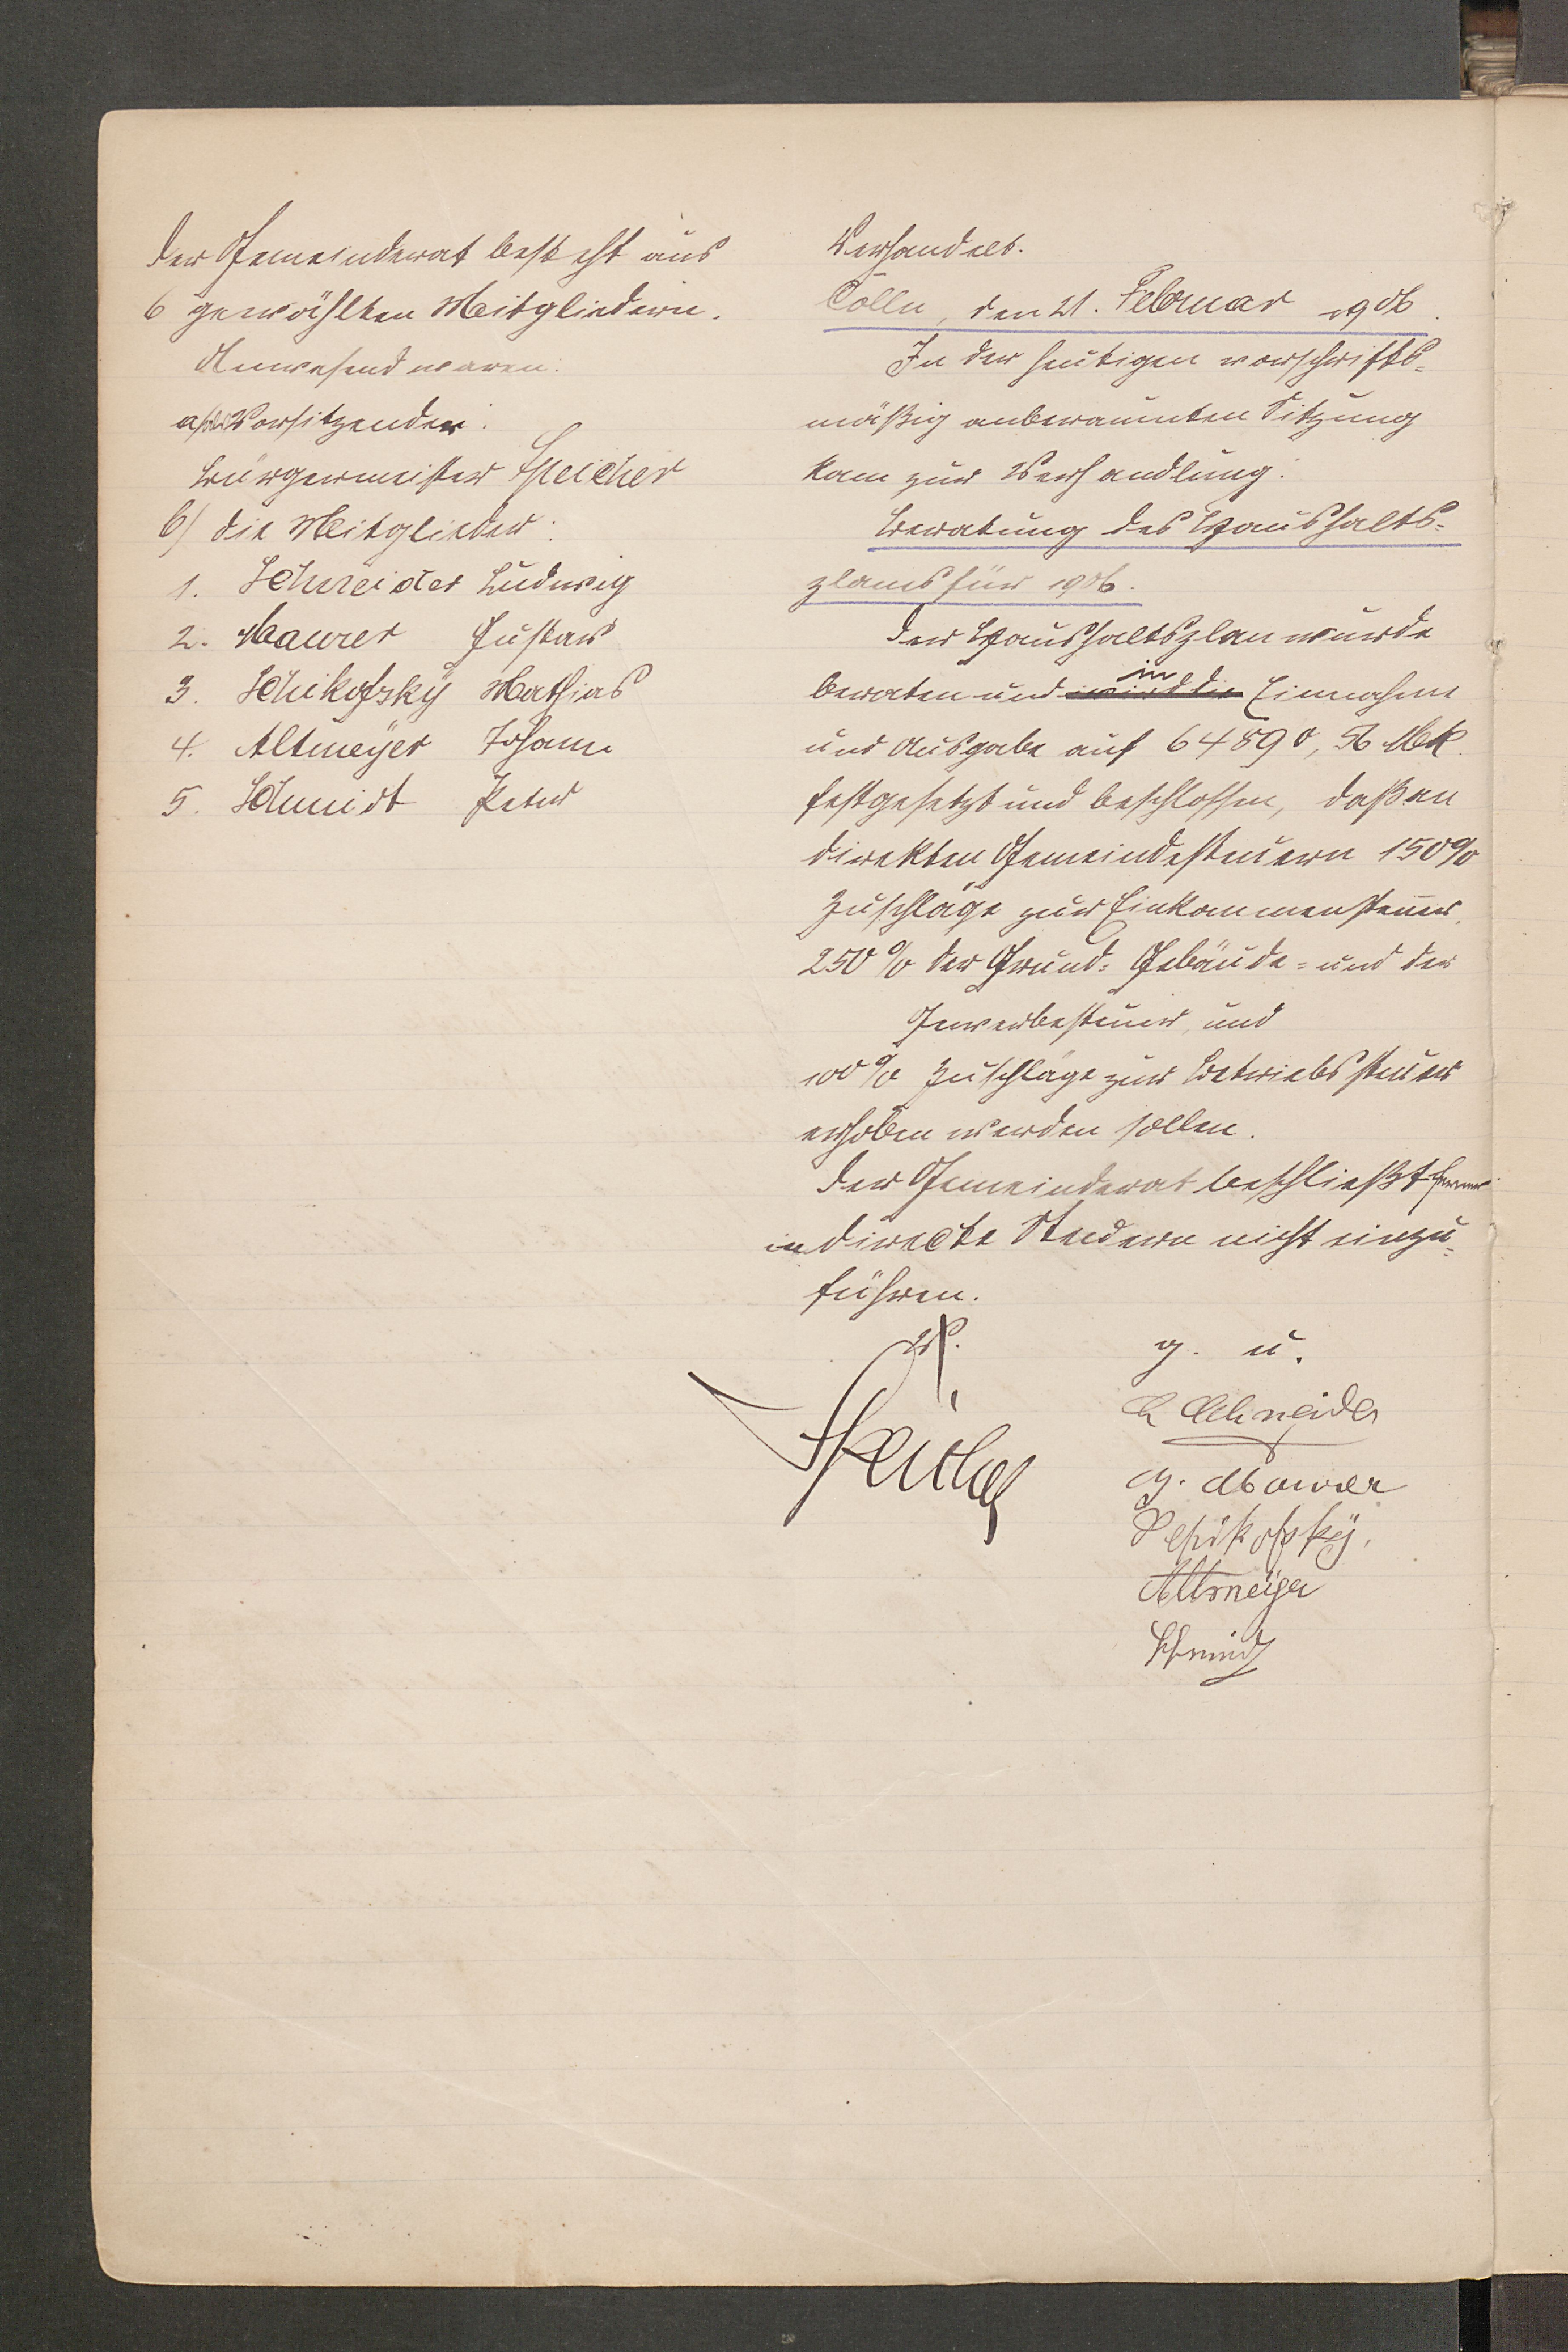 Der Gemeinderat besteht aus
6 gewählten Mitgliedern.
Anwesend waren:
a) der Vorsitzender:
Bürgermeister Speicher
b) die Mitglieder:
1. Schneider Ludwig
2. Maurer Gustav
3. Schikofsky Mathias
4. Altmeyer Johann
5. Schmidt Peter
Verhandelt.
Cölln, den 21. Februar 1906.
In der heutigen vorschrifts-
mäßig anberaumten Sitzung
kam zur Verhandlung:
Beratung des Haushalts-
plans für 1906.
Der Haushaltsplan wurde
beraten und in Einnahme
und Ausgabe auf 64890,56 Mk.
festgesetzt und beschlossen, daß an
direkten Gemeindesteuern 150%
Zuschläge zur Einkommensteuer,
250% der Grund- Gebäude- und der
Gewerbesteuer, und
100% Zuschläge zur Betriebssteuer
erhoben werden sollen.
Der Gemeinderat beschließt ferner
indirecte Steuern nicht einzu-
führen.
g. u.
Speicher
L Schneider
G. Maurer
Schikofsky.
Altmeyer
Schmidt